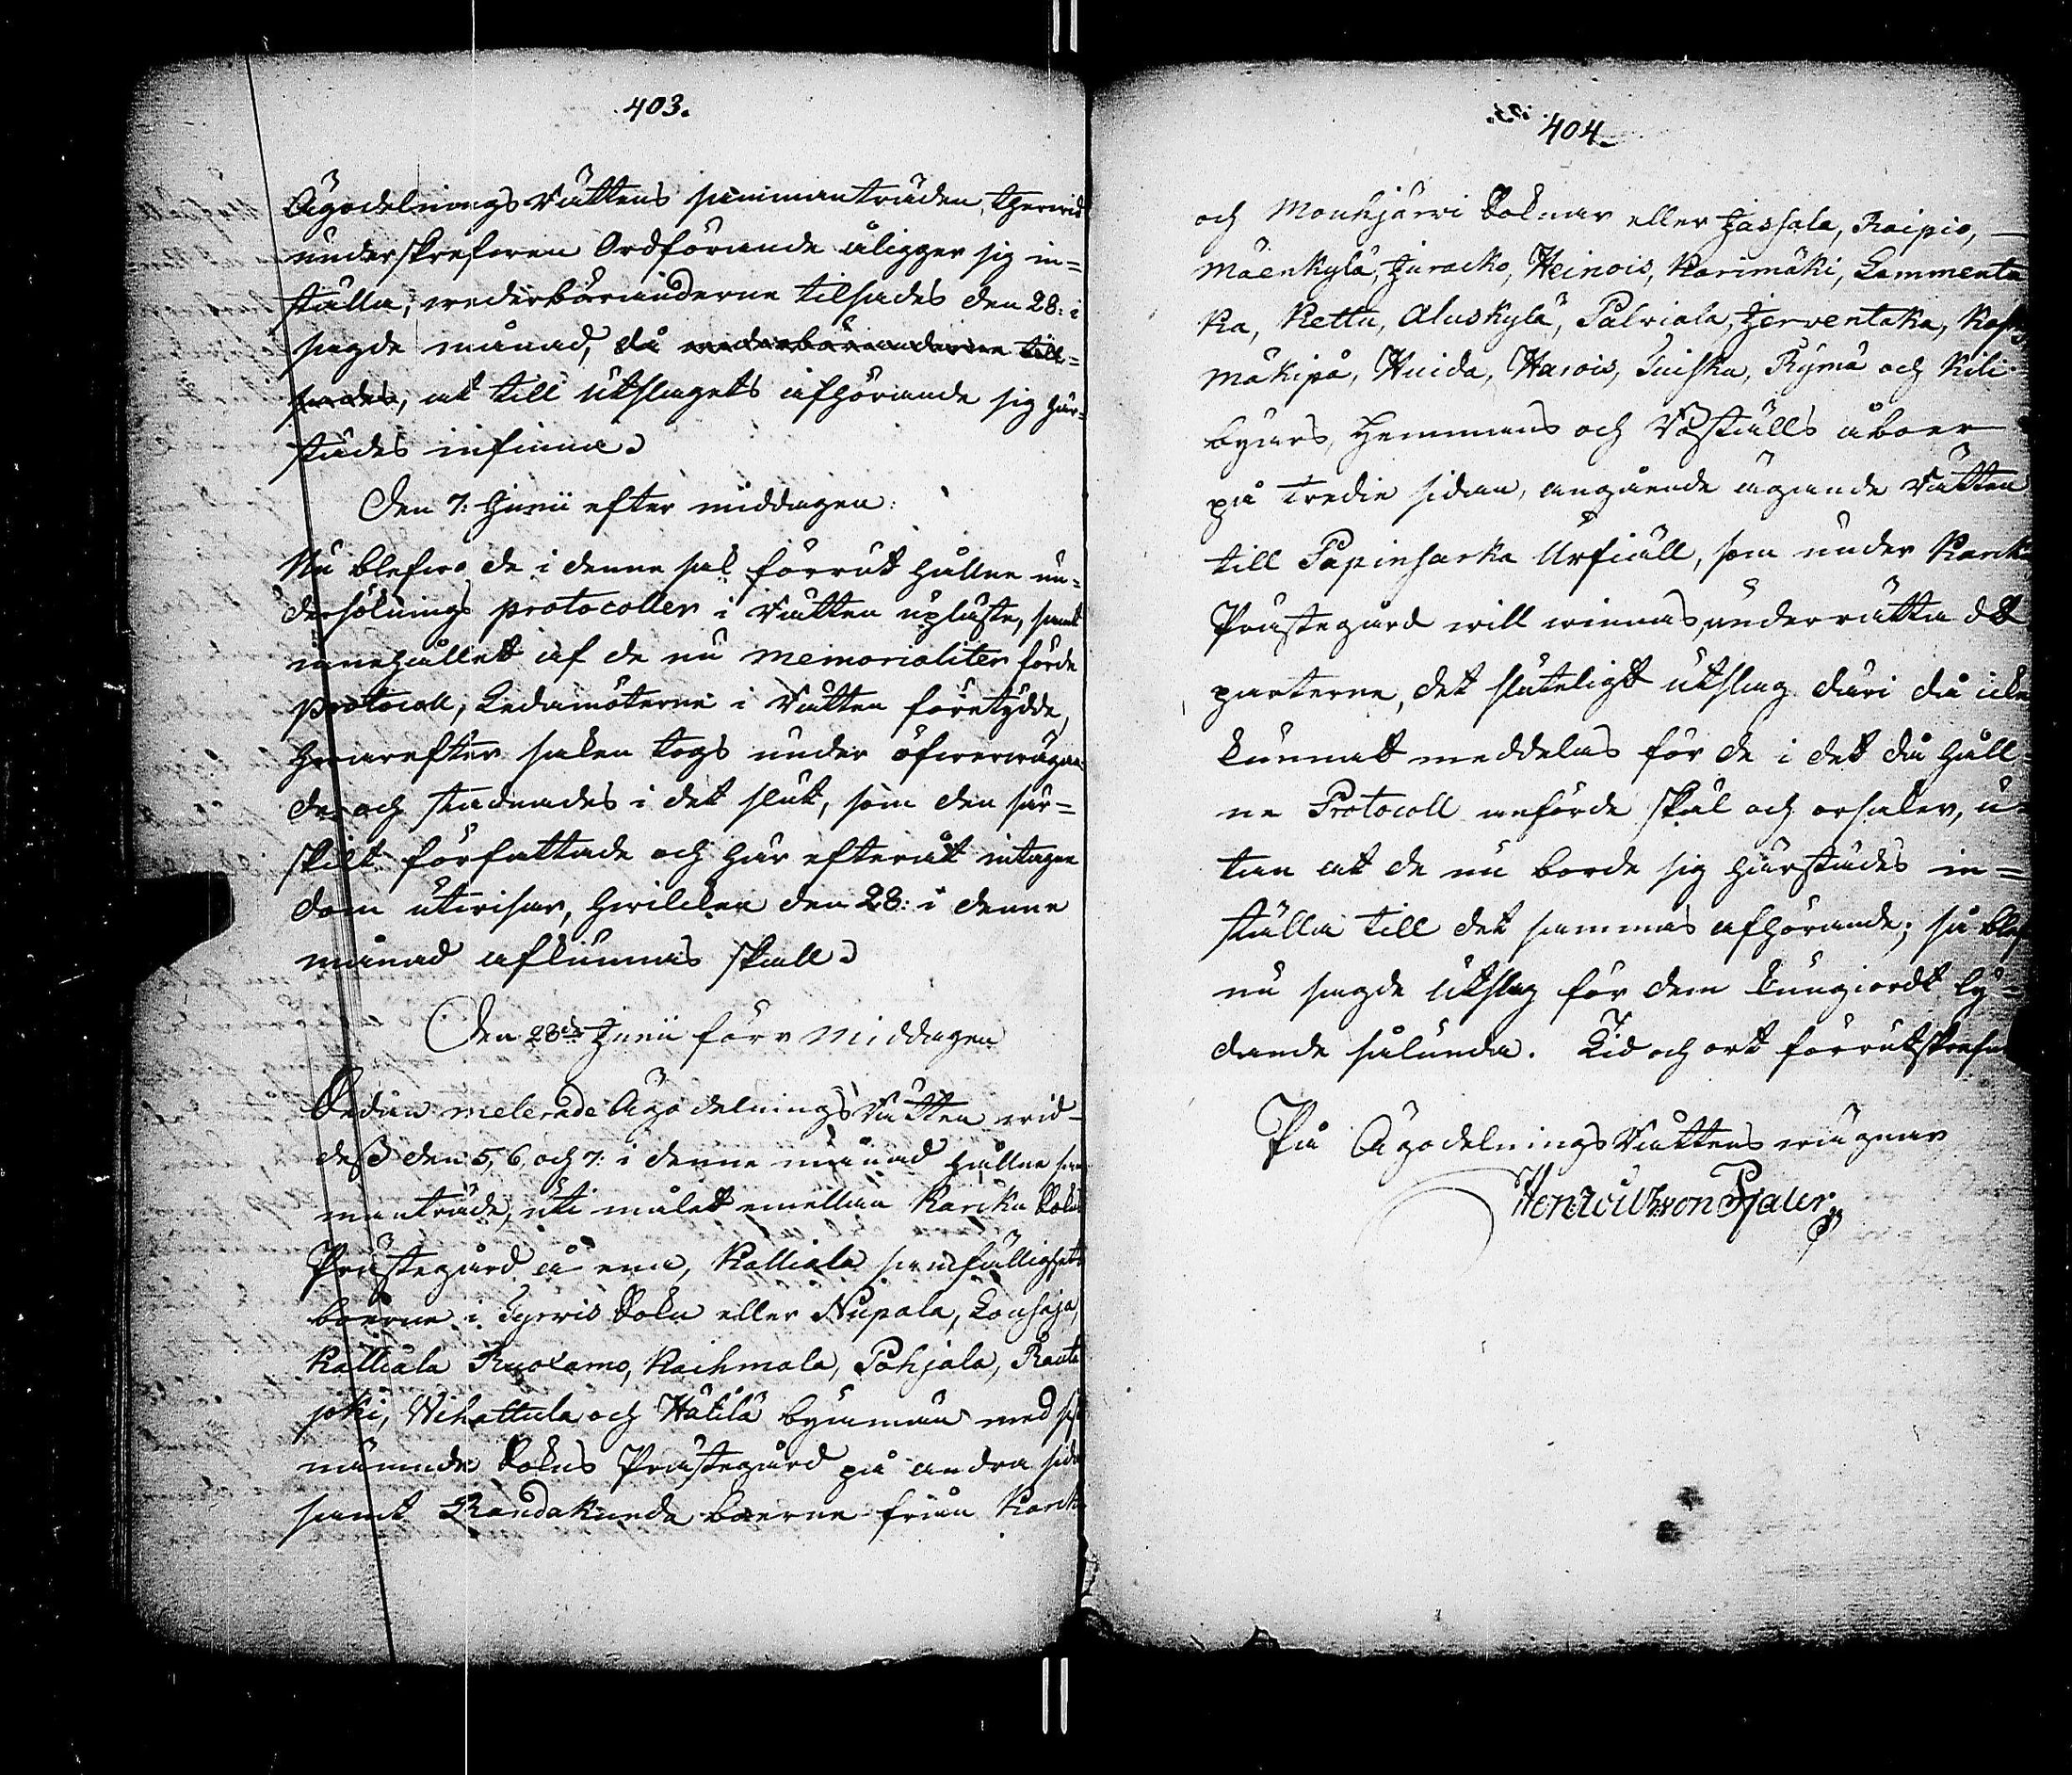 403.
Ägodelnings Rättens sammanträden, hwarwid
underskrefwen Ordförande åligger sig in=
ställa, wederböranderne tilsades den 28: i
sagde månad, då wederböranderne till=
sades, at till utslagets afhörande sig här=
städes infinna.
Den 7: Junii efter middagen:
Nu blefwo de i denne sak förrut hållne un=
dersöknings protocoller i Rätten upläste, samt
innehållett af de nu memorialiter förde
protocoll, Ledamöterne i Rätten företydde,
hwarefter saken togs under öfwerwägan=
de och stadnades i det slut, som den sär=
skilt författade och här efteråt intagne
dom utwisar, hwilken den 28: i denne
månad afkunnas skall.
Den 28de Junii förr Middagen
Sedan melerade Ägodelnings Rätten wid
dess den 5, 6, och 7: i denne månad hållne sam
manträde, uti målet emellan Karcku Sokns
Prästegård å ena, Kalliala samfällighets
boerne i Tyrvis Sokn eller Nupala, Lousaja,
Kalliala Ruolamo, Kaihmala, Pohjala, Rauta
joki, Wihattula och Hätilä byamän med sist
nämnde Sokns Prästegård på andra sidan
samt Randakunda boerne från Karcku
404.
och Mouhijärvi Soknar eller Jassala, Raipio,
Mäenkylä, Juracko, Heinois, Karimäki, Lammenta
ka, Kettu, Aluskylä, Palviala, Jerventaka, Koski,
Mäkipä, Huida, Harois, Tuiska, Rymä och Kili
byars, Hemmans och Roställs åboer
på tredie sidan, angående ägande Rätten
till Papinsarka Urfiäll, som under Karcku
Prästegård will winnas, underrätta dt
parterne, det sluteligt utslag däri då icke
kunnat meddelas för de i det då håll=
ne Protocoll anförde skäl och orsaker, u=
tan at de nu borde sig härstädes in=
ställa till det sammas afhörande; så blef
nu sagde utslag för dem kungiordt ly=
dande sålunda. Tid och ort förrutskrefne
På Ägodelnings Rättens wägnar